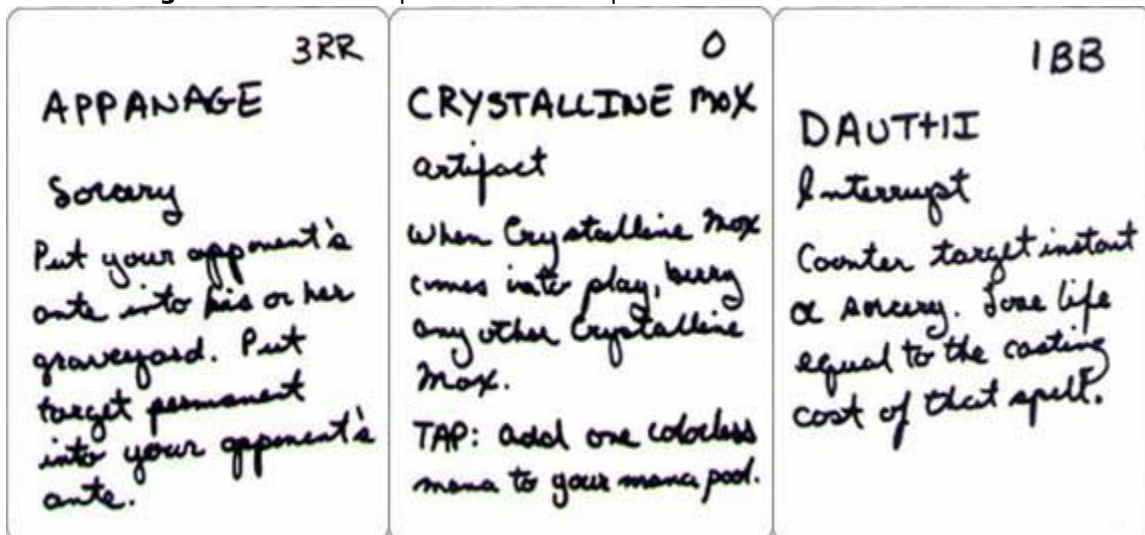 3RR
APPANAGE
Sorcery
Put your opponent's
ante into his or her
graveyard. Put
target permanent
into your opponent's
ante.
0
CRYSTALLINE MOX
artifact
When Crystalline Mox
comes into play, bury
any other Crystalline
Mox.
TAP: add one colorless
mana to your mana pool.
1BB
DAUTHI
Interrupt
Counter target instant
or sorcery. Lose life
equal to the casting
cost of that spell.